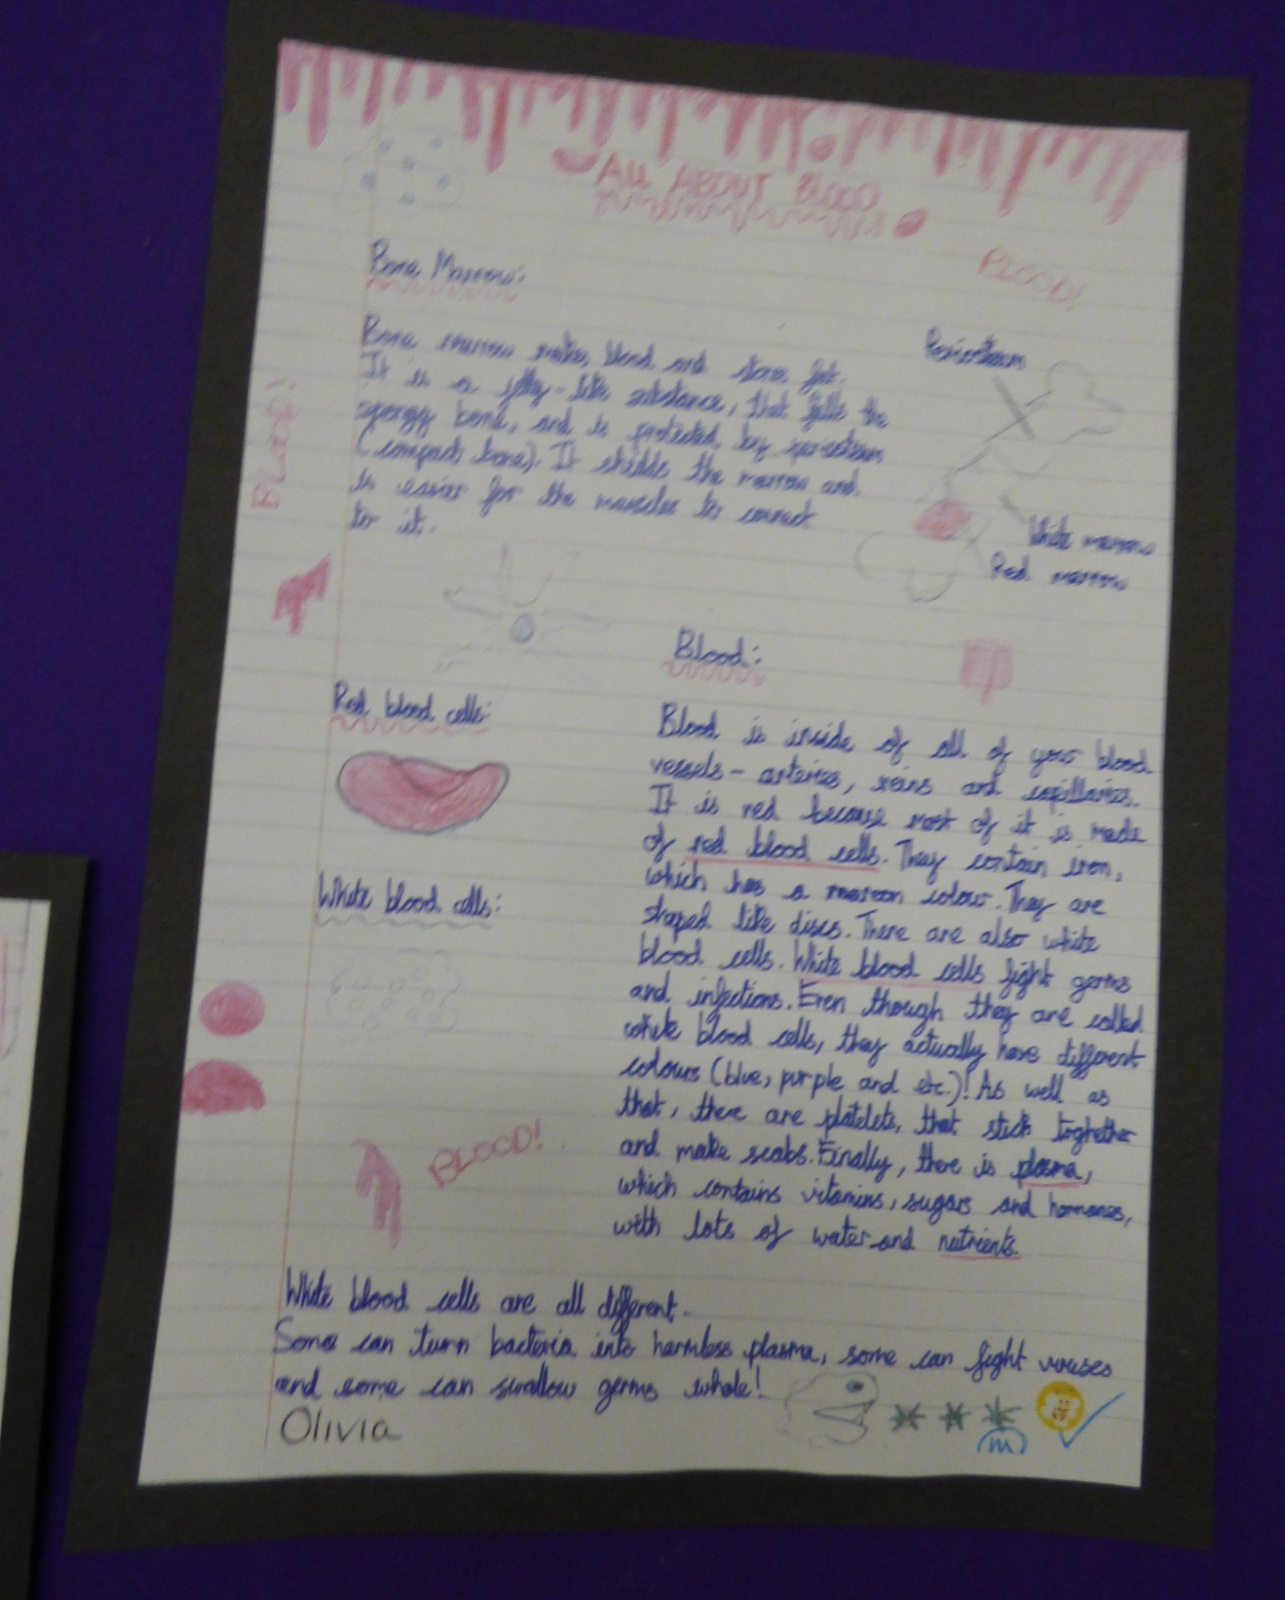 ALL ABOUT BLOOD
BLOOD!
Bone Marrow:
Bone marrow makes blood and stores fat.
It is a jelly-like substance, that fills the
spongy bone, and is protected by periosteum
(compact bone). It shields the marrow and
is easier for the muscles to connect
to it.
Periosteum
White marrow
Red marrow
BLOOD!
Red blood cells:
White blood cells:
BLOOD!
Blood:
Blood is inside of all of your blood
vessels - arteries, veins and capillaries.
It is red because most of it is made
of red blood cells. They contain iron,
which has a maroon colour. They are
shaped like discs. There are also white
blood cells. White blood cells fight germs
and infections. Even though they are called
white blood cells, they actually have different
colours (blue, purple and etc.)! As well as
that, there are platelets, that stick toghether
and make scabs. Finally, there is plasma,
which contains vitamins, sugars and hormones,
with lots of water and nutrients.
White blood cells are all different.
Some can turn bacteria into harmless plasma, some can fight viruses
and some can swallow germs whole!
Olivia